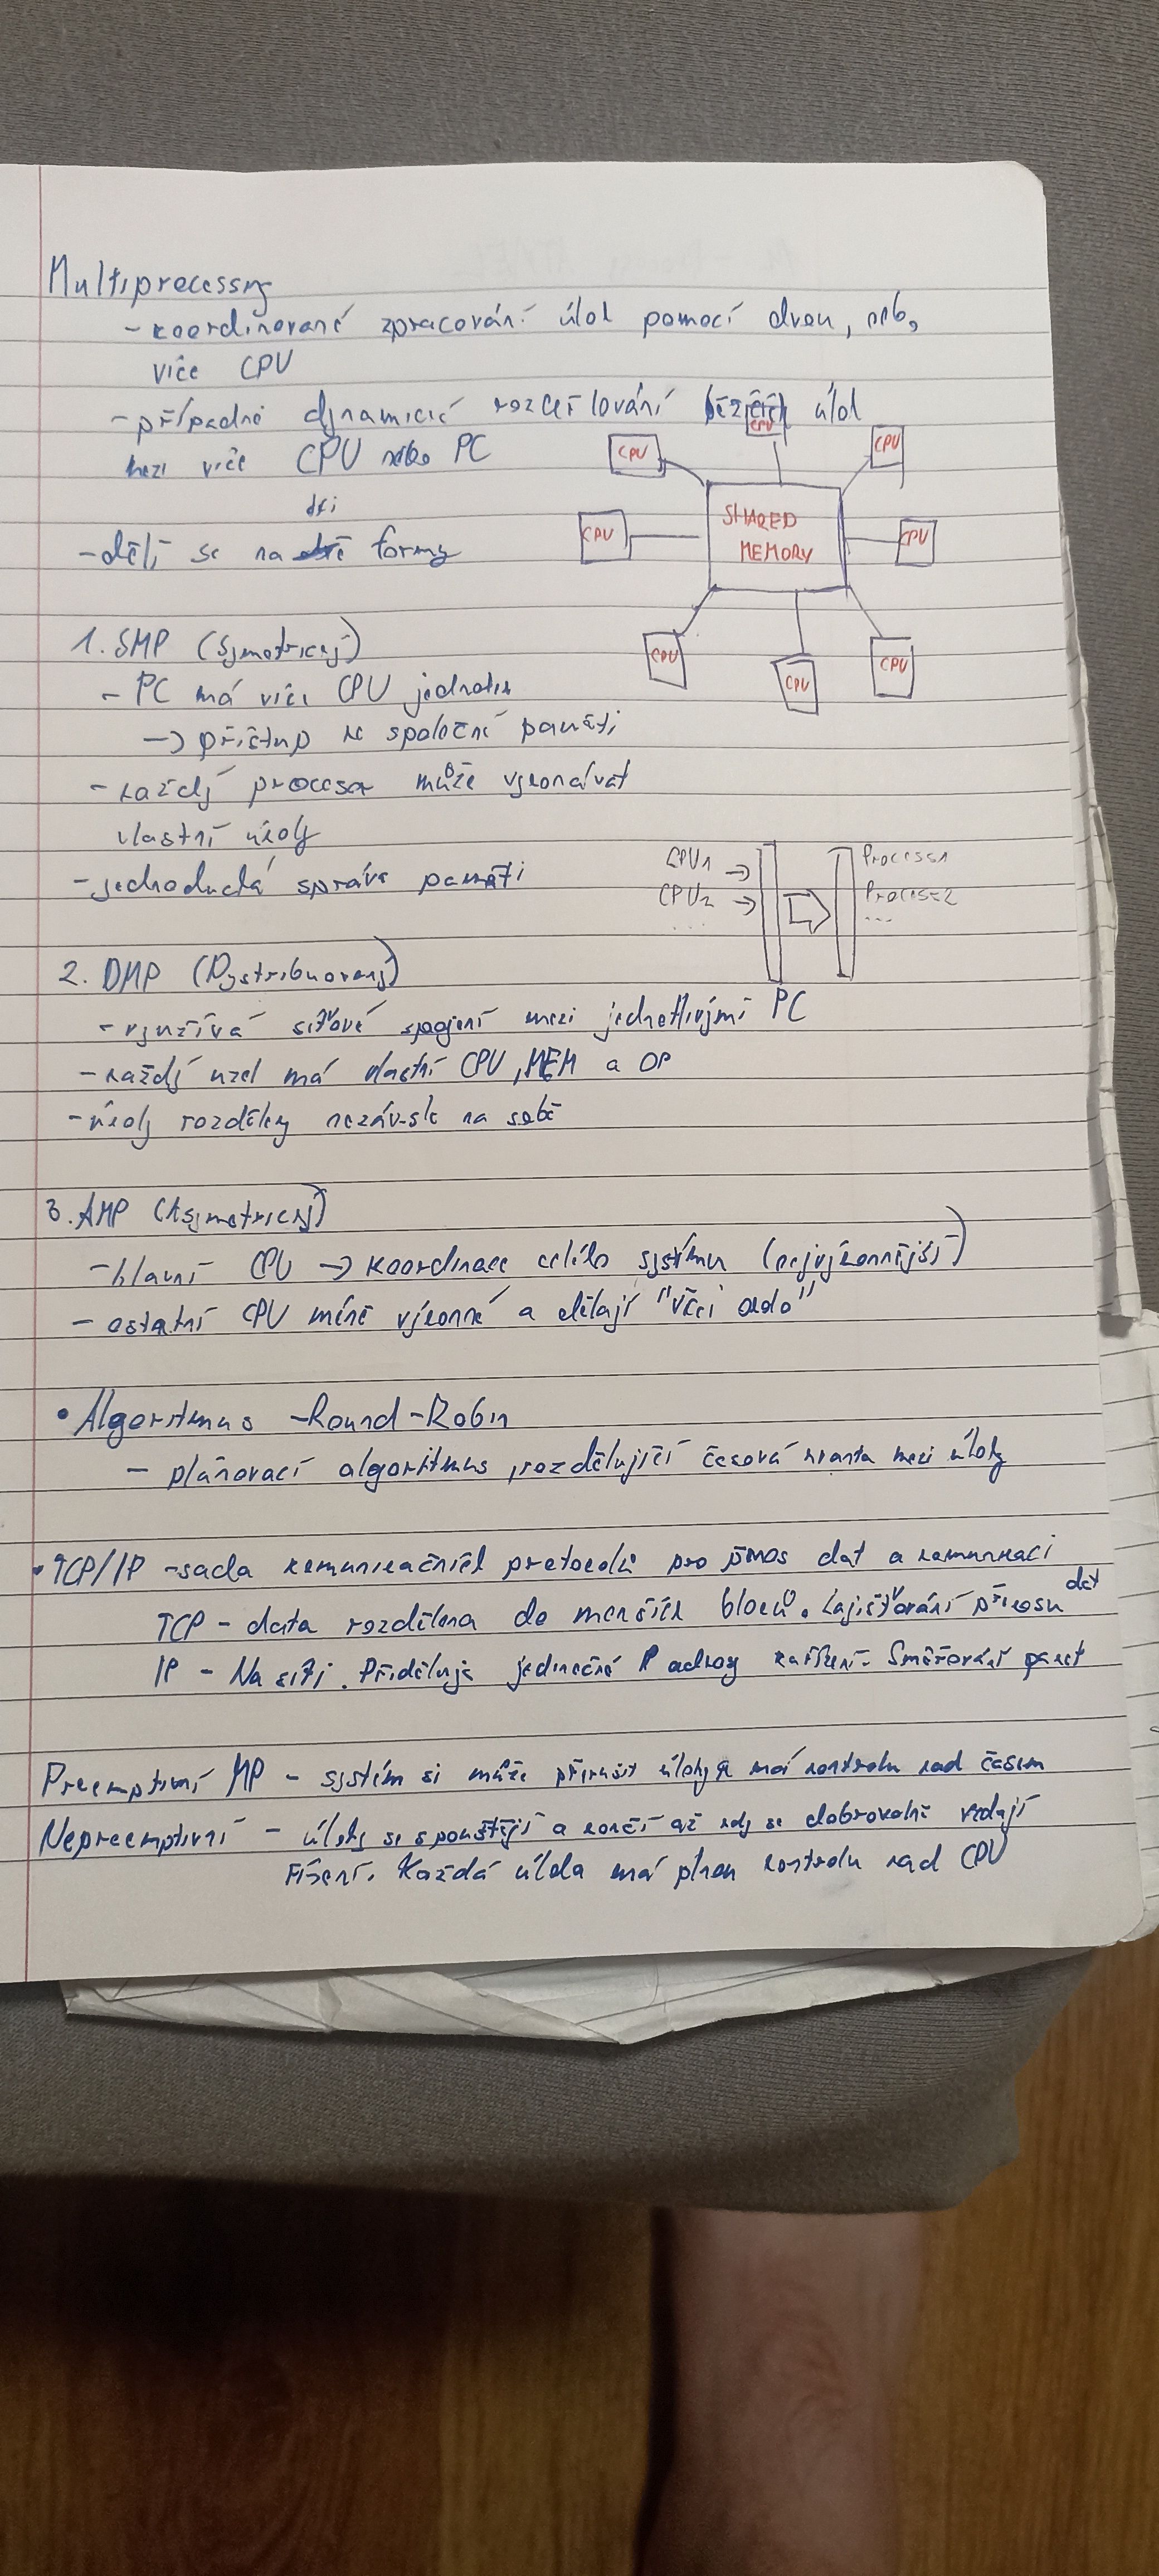 Multiprocessing
- koordinované zpracování úloh pomocí dvou, nebo
více CPU
- případné dynamické úloh
mezi více CPU nebo PC
CPU
CPU
CPU
CPU
SHARED
MEMORY
CPU
CPU
CPU
CPU
tři
- dělí se na formy
1. SMP (Symetrický)
- PC má více CPU jednotek
-> přístup ke společné paměti
- každý procesor může vykonávat
vlastní úkoly
- jednoduchá správa paměti
CPU1 ->
CPU2 ->
...
Process1
Process2
...
2. DMP (Dystribuovaný)
- využívá síťové spojení mezi jednotlivými PC
- každý uzel má vlastní CPU, MEM a OP
- úkoly rozděleny nezávisle na sobě
3. AMP (Asymetrický)
- hlavní CPU -> koordinace celého systému (nejvýkonnější)
- ostatní CPU méně výkonné a dělají "věci okolo"
• Algoritmus - Round-Robin
- plánovací algoritmus, rozdělující časová kvanta mezi úlohy
• TCP/IP - sada komunikačních protokolů pro přenos dat a komunikaci
TCP - data rozdělena do menších bloků. Zajišťování přenosu dat
IP - Na síti. Přiděluje jedinečné IP adresy zařízení. Směřování paket
Preemptivní MP - systém si může přerušit úlohy a má kontrolu nad časem
Nepreemptivní - úlohy se spouštějí a končí až kdy se dobrovolně vzdají
řízení. Každá úloha má plnou kontrolu nad CPU